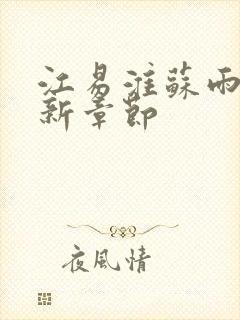 江易淮蘇雨
新章節
夜風情